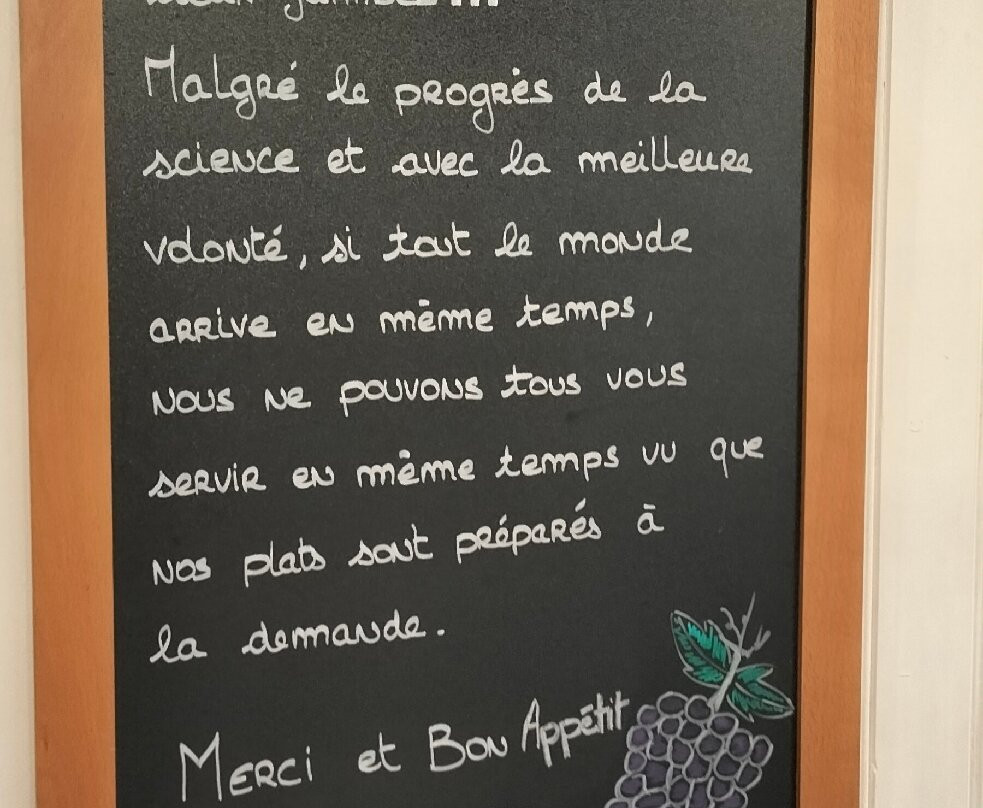 Malgré le progrès de la
science et avec la meilleure
volonté, si tout le monde
arrive en même temps,
nous ne pouvons tous vous
servir en même temps vu que
nos plats sont préparés à
la demande.
Merci et Bon Appétit